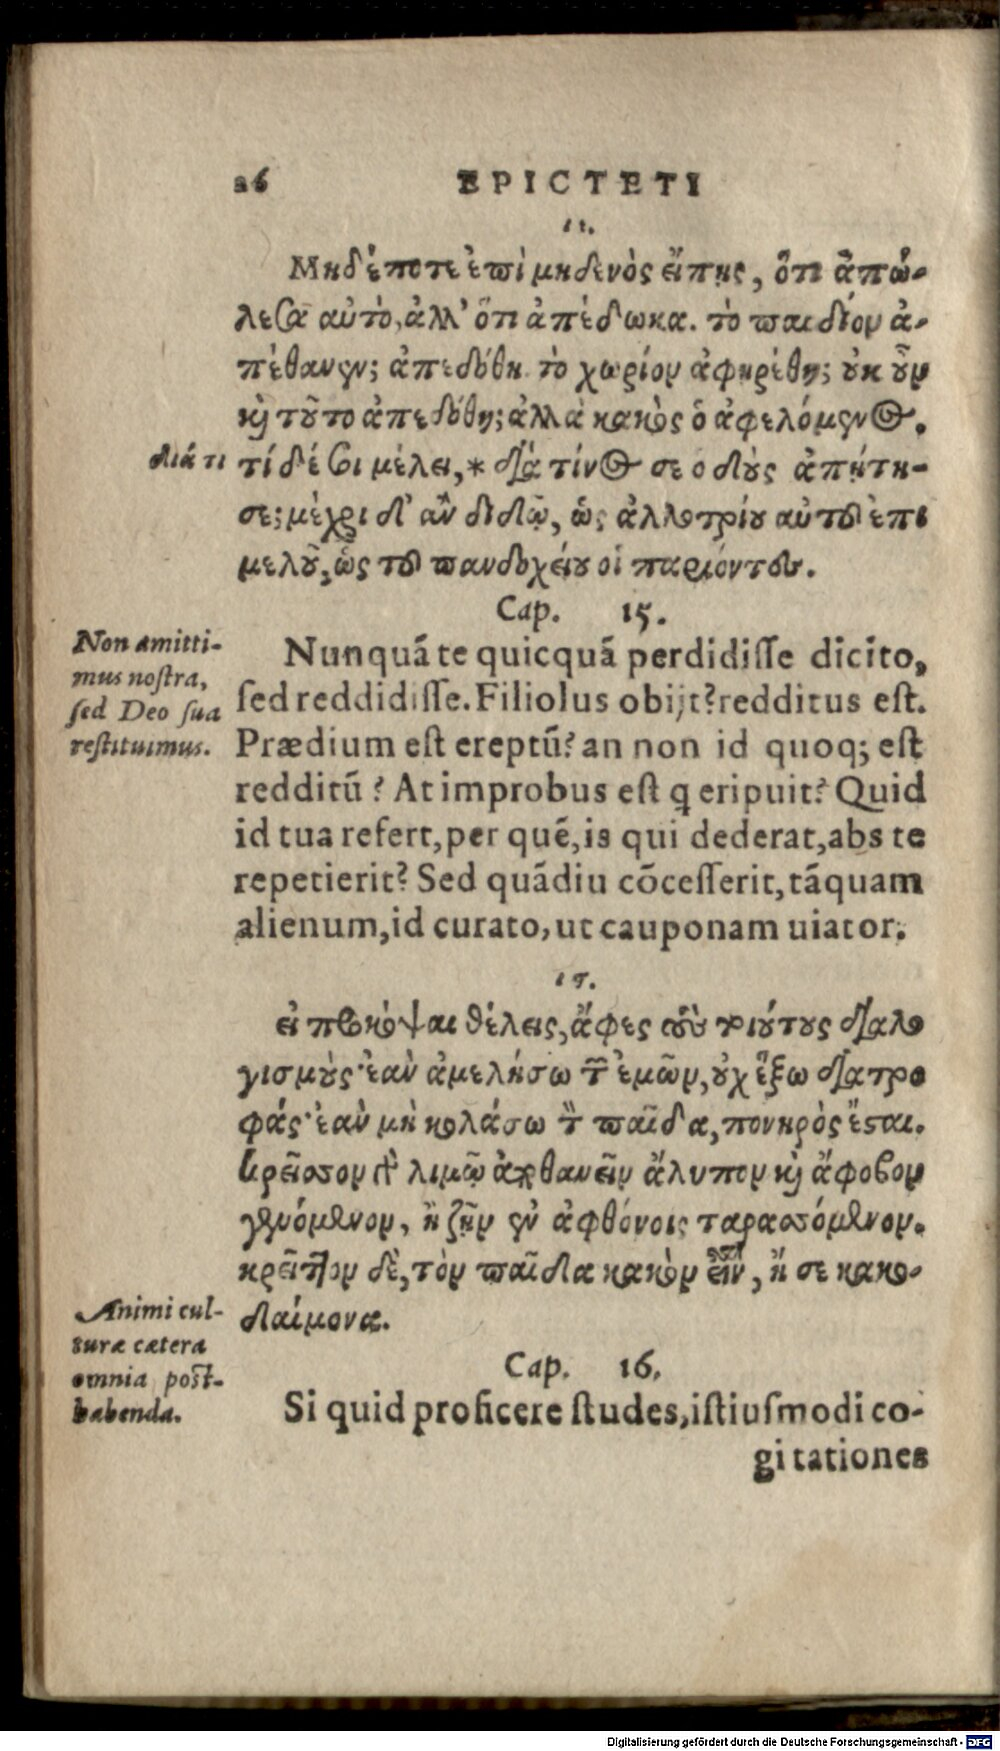 26 EPICTETI
ιε.
Μηδέποτε ἐπὶ μηδενὸς εἴπῃς, ὅτι ἀπώ-
λεσα αὐτὸ, ἀλλ' ὅτι ἀπέδωκα. τὸ παιδίον ἀ-
πέθανεν; ἀπεδόθη. τὸ χωρίον ἀφῃρέθη; οὐκ οὖν
καὶ τοῦτο ἀπεδόθη; ἀλλὰ κακὸς ὁ ἀφελόμενος.
διά τι
τί δέ σοι μέλει, * διά τίνος σε ὁ δοὺς ἀπῄτη-
σε; μέχρι δ' ἂν διδῷ, ὡς ἀλλοτρίου αὐτοῦ ἐπι
μελοῦ, ὡς τοῦ πανδοχείου οἱ παριόντες.
Cap. 15.
Non amitti-
mus nostra,
sed Deo sua
restituimus.
Nunquã te quicquã perdidisse dicito,
sed reddidisse. Filiolus obijt? redditus est.
Prædium est ereptũ? an non id quoq; est
redditũ? At improbus est q eripuit? Quid
id tua refert, per quẽ, is qui dederat, abs te
repetierit? Sed quãdiu cõcesserit, tãquam
alienum, id curato, ut cauponam uiator.
ις.
εἰ προκόψαι θέλεις, ἄφες τοὺς τοιούτους διαλο
γισμούς· ἐὰν ἀμελήσω τῶν ἐμῶν, οὐχ ἕξω διατρο
φάς· ἐὰν μὴ κολάσω τὸν παῖδα, πονηρὸς ἔσται.
κρεῖσσον γὰρ λιμῷ ἀποθανεῖν ἄλυπον καὶ ἄφοβον
γενόμενον, ἢ ζῇν ἐν ἀφθόνοις ταρασσόμενον.
κρεῖττον δὲ, τὸν παῖδα κακὸν εἶναι, ἤ σε κακο-
δαίμονα.
Cap. 16.
Animi cul-
turæ cætera
omnia post-
habenda.
Si quid proficere studes, istiusmodi co-
gitationes
Digitalisierung gefördert durch die Deutsche Forschungsgemeinschaft - DFG